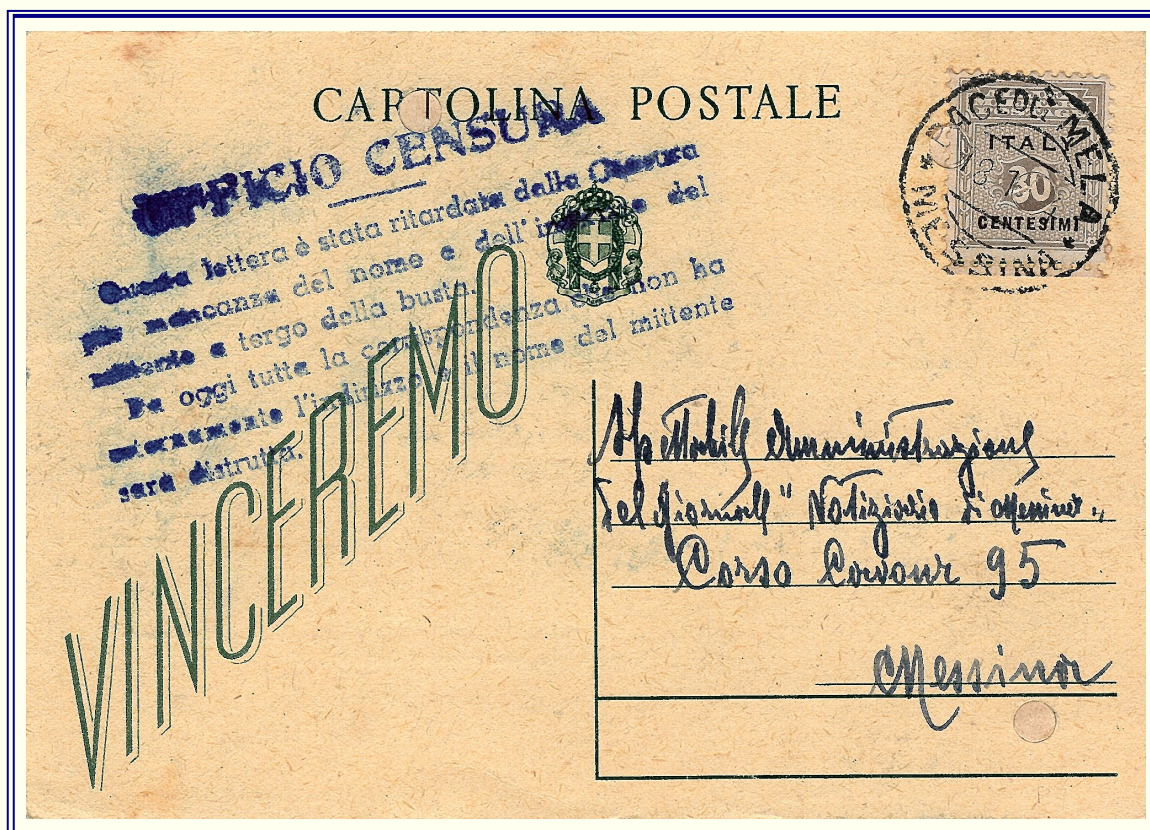 CARTOLINA POSTALE
UFFICIO CENSURA
Questa lettera è stata ritardata dalla Questura
per mancanza del nome e dell'indirizzo del
mittente a tergo della busta.
Da oggi tutta la corrispondenza che non ha
esternamente l'indirizzo e il nome del mittente
sarà distrutta.
PACE DEL MELA
ITAL
50
CENTESIMI
VINCEREMO
Amministrazione
del Giornale "Notiziario di Messina"
Corso Cavour 95
Messina